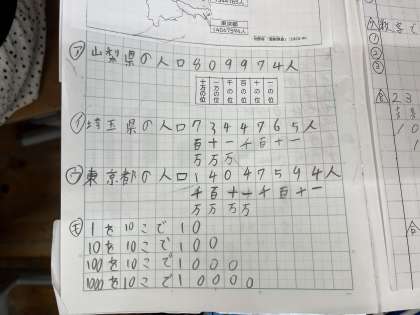 東京都
㋐山梨県の人口 809974人
十万の位 一万の位 千の位 百の位 十の位 一の位
㋑埼玉県の人口 7344765人
百十一千百十一
万万万
㋒東京都の人口 14047594人
千百十一千百十一
万万万万
㋖
1を10こで10
10を10こで100
100を10こで1000
1000を10こで10000